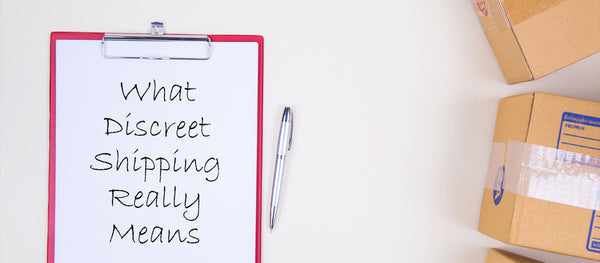 What
Discreet
Shipping
Really
Means